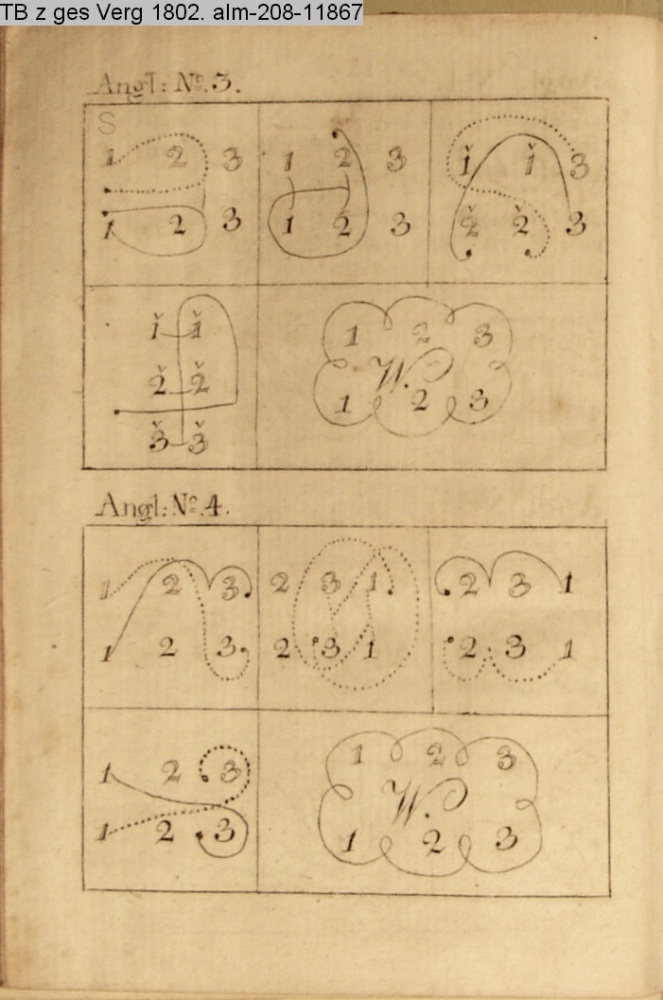 TB z ges Verg 1802. alm-208-11867
Angl: No. 3.
S
1 2 3 1 2 3 1 1 3
1 2 3 1 2 3 2 2 3
1 1 1 2 3
2 2 W.
3 3 1 2 3
Angl: No. 4.
1 2 3 2 3 1 2 3 1
1 2 3 2 3 1 2 3 1
1 2 3 1 2 3
W.
1 2 3 1 2 3